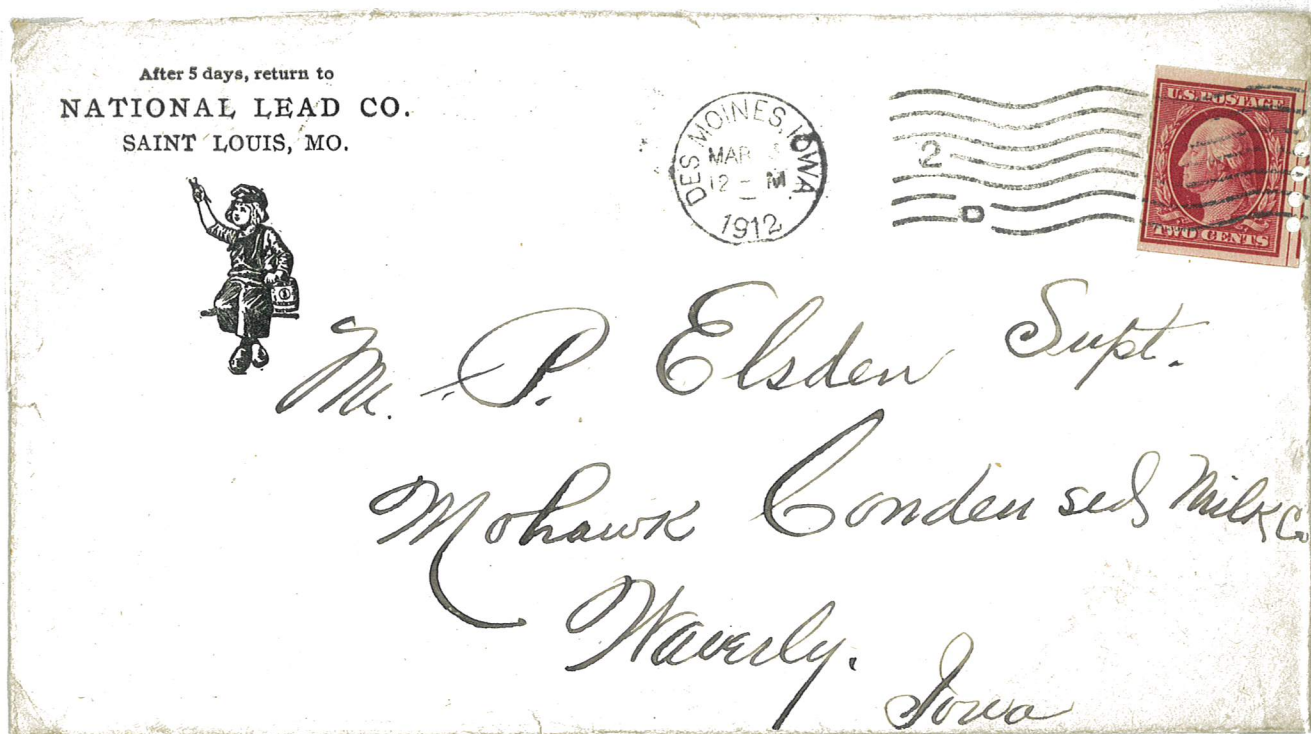 After 5 days, return to
NATIONAL LEAD CO.
SAINT LOUIS, MO.
DES MOINES, IOWA
MAR
12 - M
1912
2
D
U.S. POSTAGE
TWO CENTS
Mr. P. Elsden Supt.
Mohawk Condensed Milk Co.
Waverly.
Iowa